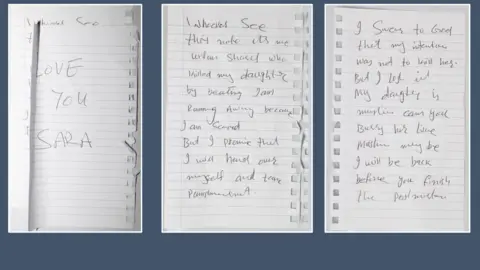 LOVE
YOU
SARA
I whoever See
this note its me
who
my daughter
by beating I am
Running Away because
I am Scared
But I promise that
I will hand over
myself and take
Punishment.
I Swear to God
that my intention
was not to kill her.
But I lost it
My daughter is
muslim can you
Bury her like
Muslim may be
I will be back
before you finish
the